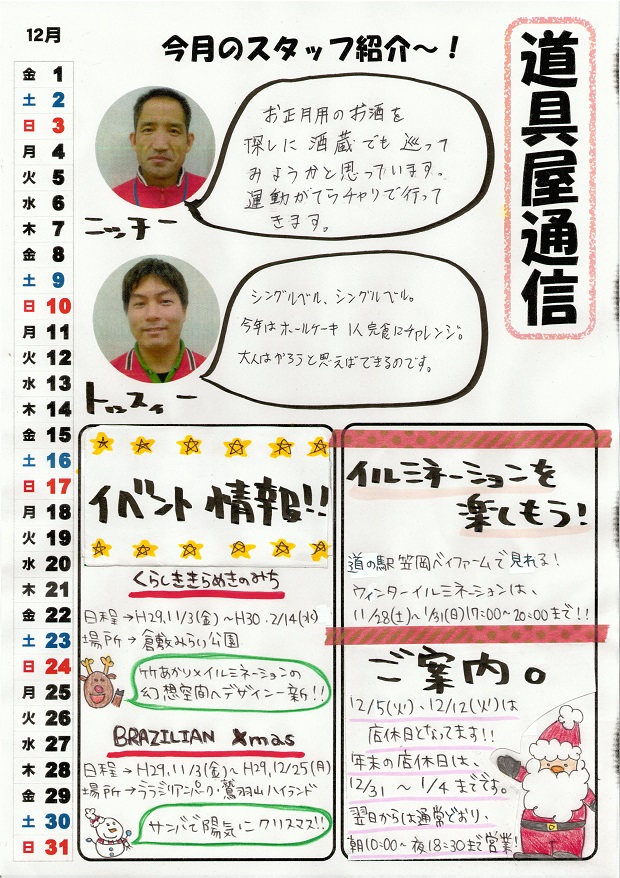 12月
今月のスタッフ紹介～！
道具屋通信
金 1
土 2
日 3
月 4
火 5
水 6
木 7
金 8
土 9
日 10
月 11
火 12
水 13
木 14
金 15
土 16
日 17
月 18
火 19
水 20
木 21
金 22
土 23
日 24
月 25
火 26
水 27
木 28
金 29
土 30
日 31
お正月用のお酒を
探しに酒蔵でも巡って
みようかと思っています。
運動がてらチャリで行って
きます。
ニッチー
シングルベル、シングルベル。
今年はホールケーキ1人完食にチャレンジ。
大人はやろうと思えばできるのです。
イベント情報!!
くらしききらめきのみち
日程→H29.11/3(金)～H30.2/14(水)
場所→倉敷みらい公園
竹あかり×イルミネーションの
幻想空間へデザイン一新!!
BRAZILIAN Xmas
日程→H29.11/3(金)～H29.12/25(月)
場所→ブラジリアンパーク鷲羽山ハイランド
サンバで陽気にクリスマス!!
イルミネーションを
楽しもう!
道の駅 笠岡ベイファームで見れる!
ウィンターイルミネーションは、
11/28(土)～1/31(日)17:00～20:00まで!!
ご案内。
12/5(火)、12/12(火)は
店休日となってます!!
年末の店休日は、
12/31～1/4までです。
翌日からは通常どおり、
朝10:00～夜18:30まで営業!